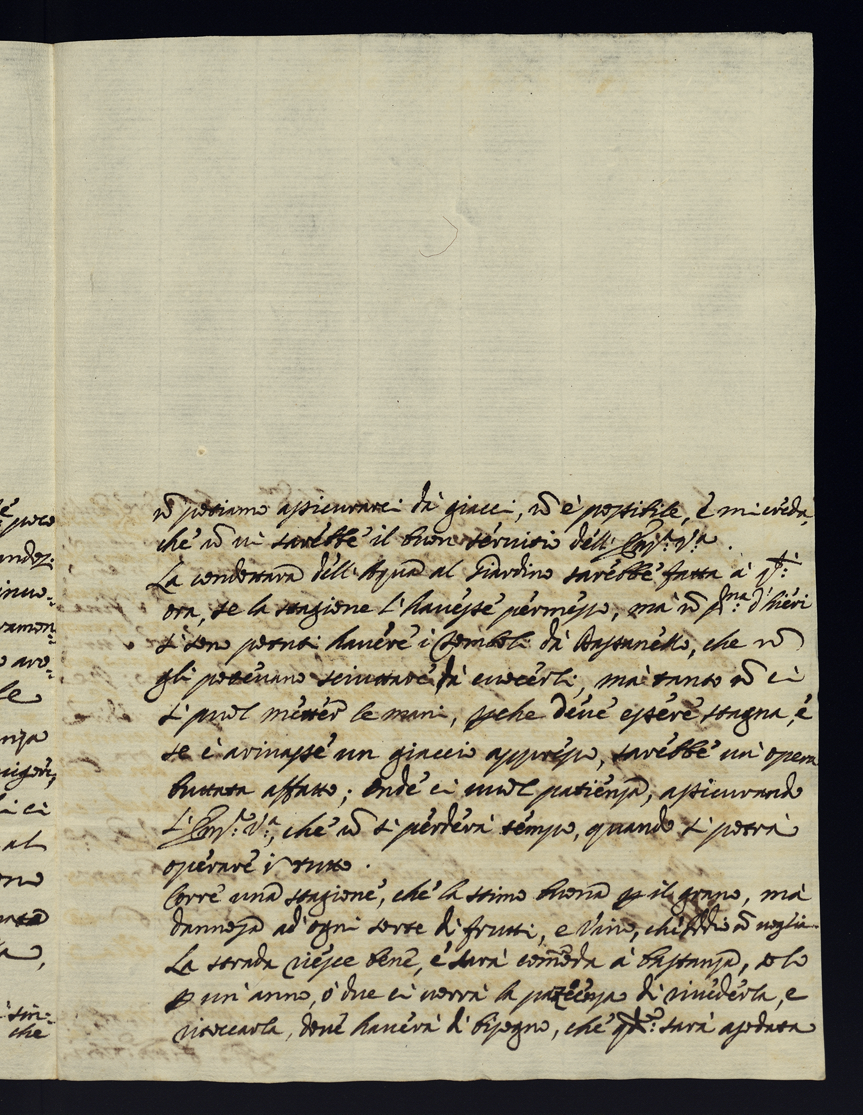 nõ potiamo assicurarci dà giacci, nõ è possibile, è mi creda,
che nõ vi sarebbe il buon servitio dell' Emz.ª V.ª.
La condottara dell' Aqua al Giardino sarebbe fatta à q.ta
ora, se la stagione l'havesse permesso, mà nõ p.ma d'hieri
si son potuti havere i Comboli dà Bassanello, che nõ
gli potevano sciuttare dà cuocerli, mà tanto nõ ci
si puol metter le mani, perche deve essere stagna, è
se c'arivasse un giaccio appresso, sarebbe un' opera
buttata affatto; Onde ci vuol patienza, assicurando
l'Emz.ª V.ª, che nõ si perderà tempo, quando si potrà
operare il tutto.
Corre una stagione, che la stimo buona p il grano, mà
dannosa ad ogni sorte di frutti, e Vino, che Iddio nõ voglia.
La strada riesce bene, è sarà comoda à bastanza, solo
p un' anno, ò due ci vorrà la pazienza di rivederla, e
ritoccarla, dove haverà di bisogno, che q.do sarà assodata
poco
le
al
che